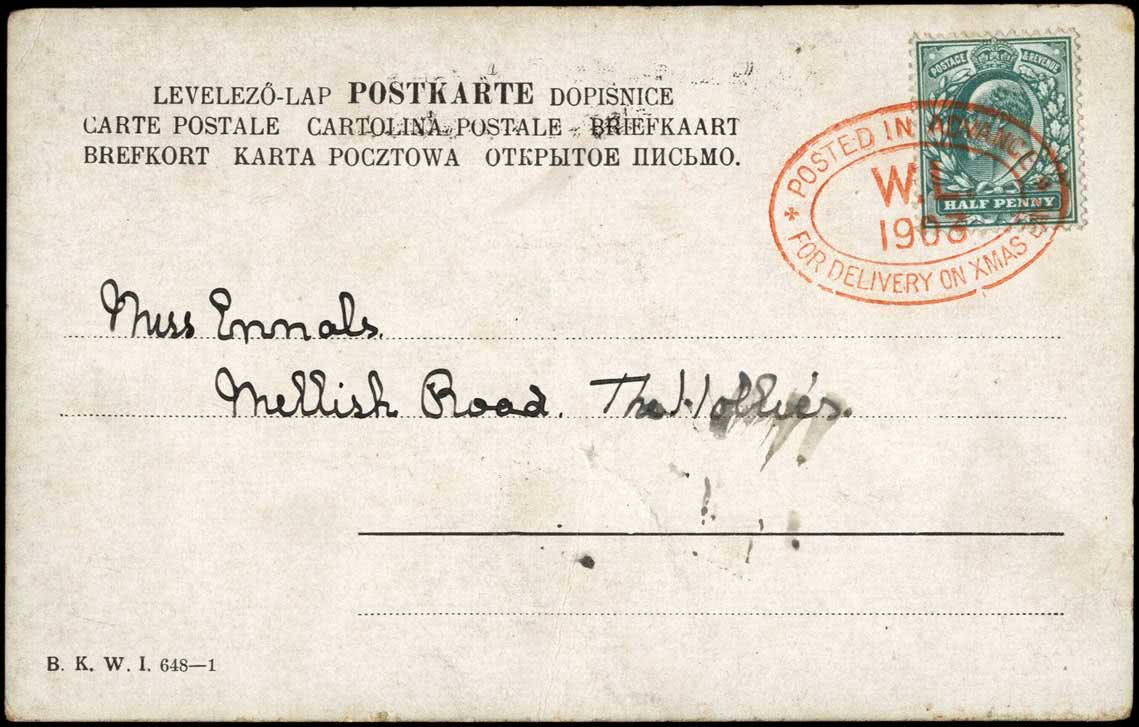 LEVELEZŐ-LAP POSTKARTE DOPISNICE
CARTE POSTALE CARTOLINA POSTALE BRIEFKAART
BREFKORT KARTA POCZTOWA ОТКРЫТОЕ ПИСЬМО.
POSTAGE & REVENUE
HALF PENNY
POSTED IN ADVANCE
W.L.
1903
FOR DELIVERY ON XMAS
Miss Ennals.
Mellish Road. The Hollies.
B. K. W. I. 648—1